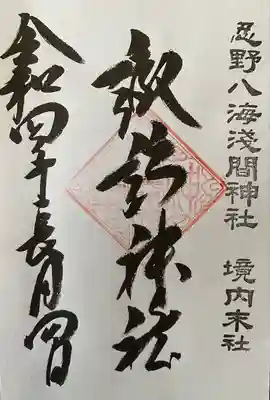 忍野八海淺間神社　境内末社
神社
令和四年長月四日